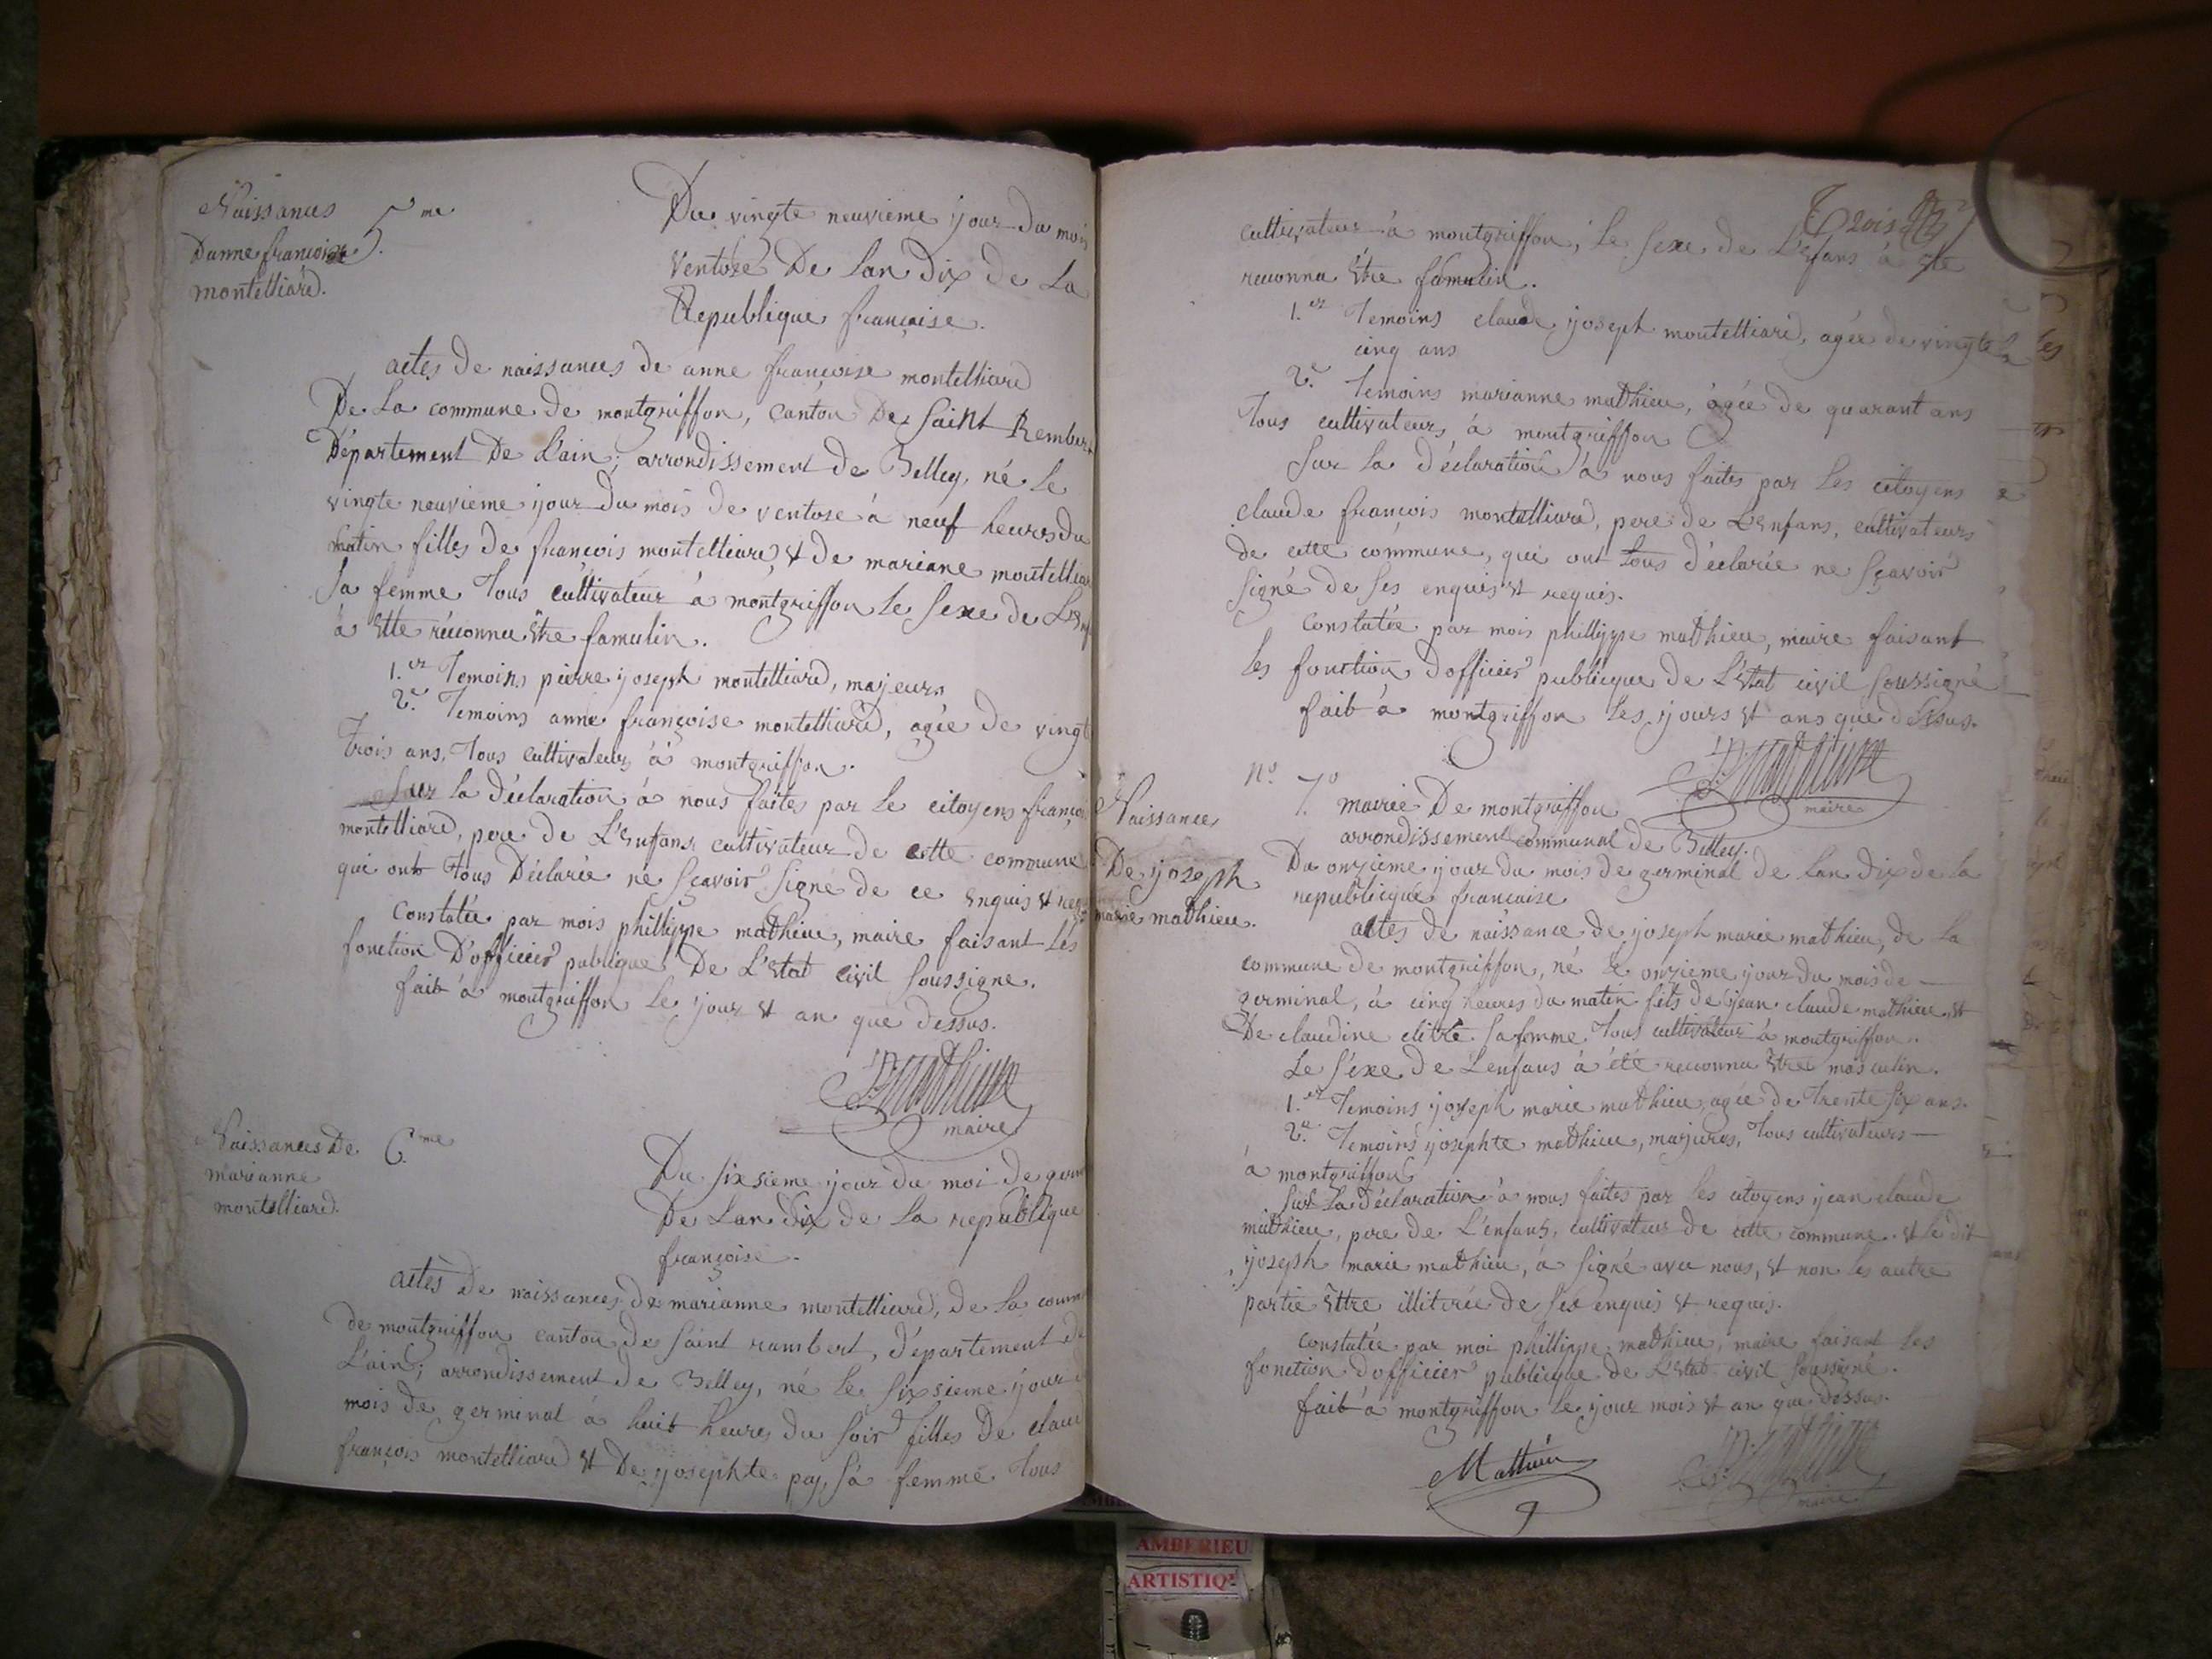 Naissances
Danne francoise
montelliard.
5.me
Du vingte neuvieme jour du mois
Ventose De Lan Dix de La
Republique francaise.
actes De naissances de anne francoise montelliard
De La commune de montgriffon, canton De Saint Rembert
Département De L'ain; arrondissement de Belley, né Le
vingte neuvieme jour Du mois de ventose à neuf heures du
matin filles de francois montelliard, & de mariane montelliar
Sa femme Tous cultivateur à montgriffon Le Sexe de L'enf
à Ette réconnu Etre famulin.
1.er Temoins pierre joseph montelliard, majeurs
2.e Temoins anne françoise montelliard, agée de vingt
trois ans, Tous cultivateurs à montgriffon.
Sur la Déclaration à nous faites par Le citoyens françoi
montelliard, pere de L'Enfans cultivateur de cette commune
qui ont Tous Déclarée ne Sçavoir Signé de ce Enquis & req
Constatée par mois phillippe mathieu, maire faisant Les
fonction D'officier publique De L'Etat civil Soussigne.
fait à montgriffon Le jour & an que dessus.
P. mathieu
maire
Naissances De
marianne
montelliard.
6.me
Du Sixsieme jour du moi de germ
De Lan Dix de La republique
françoise.
actès de naissances de marianne montelliard, de La comm
de montgriffon canton de Saint rambert, Département de
L'ain; arrondissement de Belley, né Le Sixsieme jour d
mois de germinal à huit heures du Soir filles De clau
françois montelliard & De josephte pay, Sa femme Tous
Trois
cultivateur à montgriffon, Le Sexe de L'Enfans à Ete
reconnu Etre famulin.
1.er Temoins claude joseph montelliard, agée de vingte
cinq ans
2.e Temoins marianne mathieu, agée de quarant ans
Tous cultivateurs à montgriffon
Sur La Déclaration à nous faites par Les citoyens
claude françois montelliard, pere de L'Enfans, cultivateurs
de cette commune, qui ont Tous déclarée ne Sçavoir
Signé de Ses enquis & requis.
Constatée par mois phillippe mathieu, maire faisant
Les fonction d'officier publicque de L'Etat civil Soussigné
fait à montgriffon Les jours & ans que dessus.
P. mathieu
maire
Naissances
De joseph
marie mathieu.
No. 7o
mairie De montgriffon
arrondissement communal de Belley.
Du onzieme jour du mois de germinal de Lan Dix de la
republicque francaise
actes de naissance de joseph marie mathieu, de La
commune de montgriffon, né Le onzieme jour Du mois de
germinal, à cinq heures du matin fils de jean claude mathieu, &
De claudine Sa femme Tous cultivateur à montgriffon.
Le Séxe De L'enfans à été reconnu Etre masculin.
1.er Temoins joseph marie mathieu, agée de Trente Six ans.
2.e Temoins josephte mathieu, majures, Tous cultivateurs
à montgriffon
Sur La Déclaration à nous faites par les citoyens jean claude
mathieu, pere de L'enfans, cultivateur de cette commune. & Le dit
joseph marie mathieu, à Signé avec nous, & non les autre
partie Ettre illitirée de Ses enquis & requis.
constatée par moi phillippe mathieu, maire faisant Les
fonction d'officier publicque de L'Etat civil Soussigné.
fait à montgriffon Le jour mois & an que dessus.
Mathieu
P. mathieu
maire
AMBERIEU
ARTISTIQ